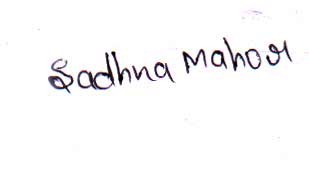 Sadhna Mahor